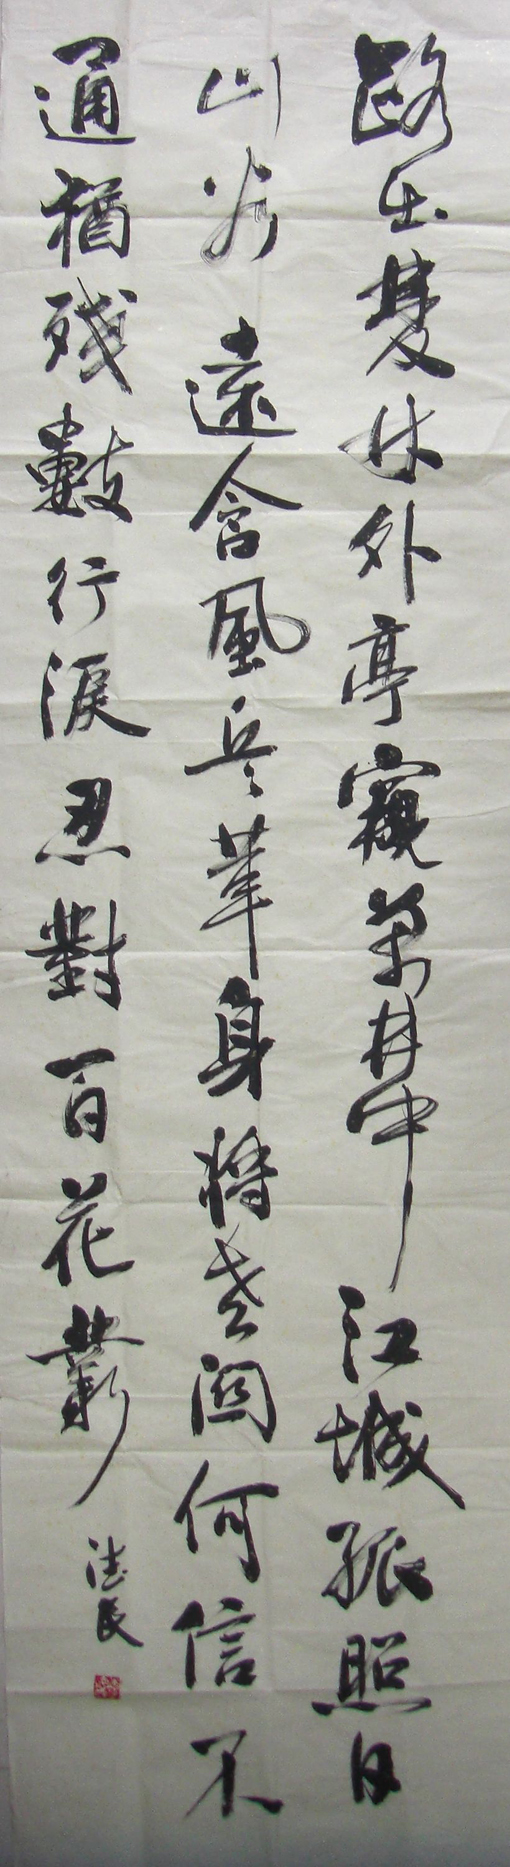 路出雙林外亭窺萬井中江城孤照日
山谷遠含風兵革身將老關何信不
通猶殘數行淚忍對百花叢